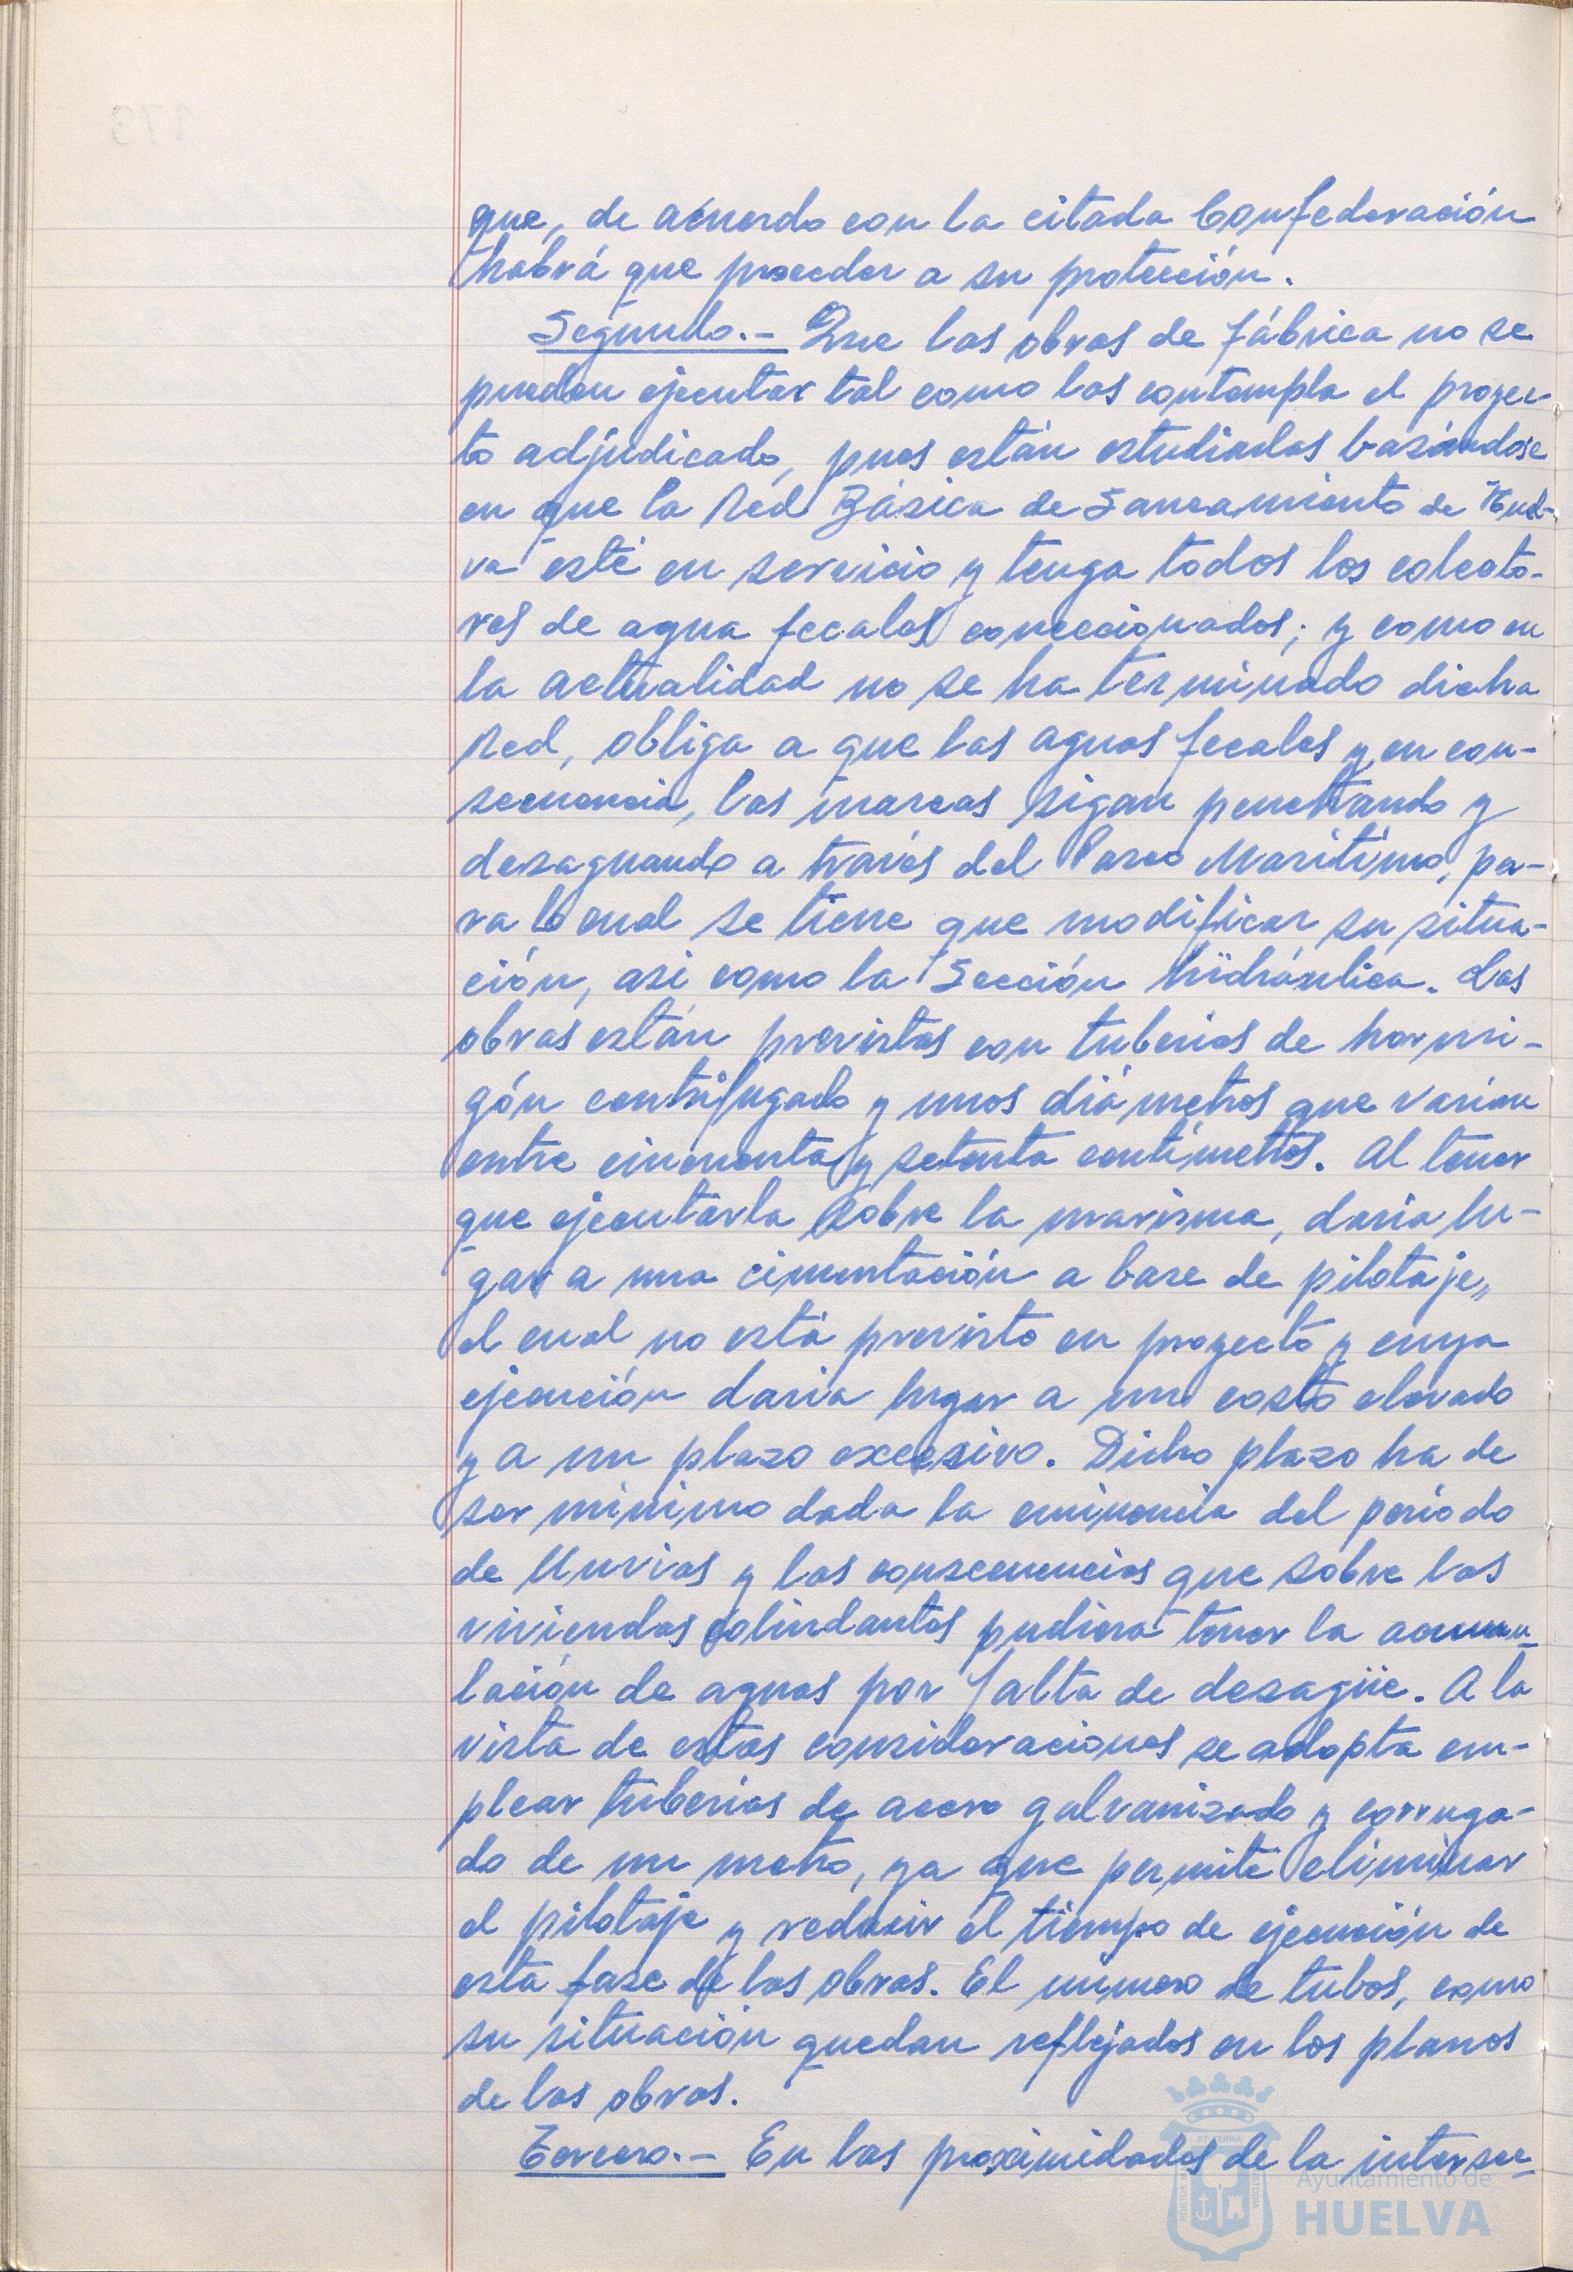 que, de acuerdo con la citada Confederación
habrá que proceder a su protección.
Segundo.- Que las obras de fábrica no se
pueden ejecutar tal como las contempla el proyec-
to adjudicado, pues están estudiadas basándose
en que la Red Básica de Saneamiento de Huel-
va esté en servicio y tenga todos los colecto-
res de agua fecales coneccionados; y como en
la actualidad no se ha terminado dicha
Red, obliga a que las aguas fecales y, en con-
secuencia, las mareas sigan penetrando y
desaguando a través del Paseo Marítimo, pa-
ra lo cual se tiene que modificar su situa-
ción, asi como la Sección hidráulica. Las
obras están previstas con tuberias de hormi-
gón centrifugado y unos diámetros que varian
entre cincuenta y setenta centímetros. Al tener
que ejecutarla sobre la marisma, daria lu-
gar a una cimentación a base de pilotaje,
el cual no está previsto en proyecto y cuya
ejecución daria lugar a un costo elevado
y a un plazo excesivo. Dicho plazo ha de
ser mínimo dada la eminencia del período
de lluvias y las consecuencias que sobre las
viviendas colindantes pudiera tener la acumu-
lación de aguas por falta de desagüe. A la
vista de estas consideraciones se adopta em-
plear tuberias de acero galvanizado y corruga-
do de un metro, ya que permite eliminar
el pilotaje y reducir el tiempo de ejecución de
esta fase de las obras. El número de tubos, como
su situación quedan reflejados en los planos
de las obras.
Tercero.- En las proximidades de la intersec-
Ayuntamiento de
HUELVA